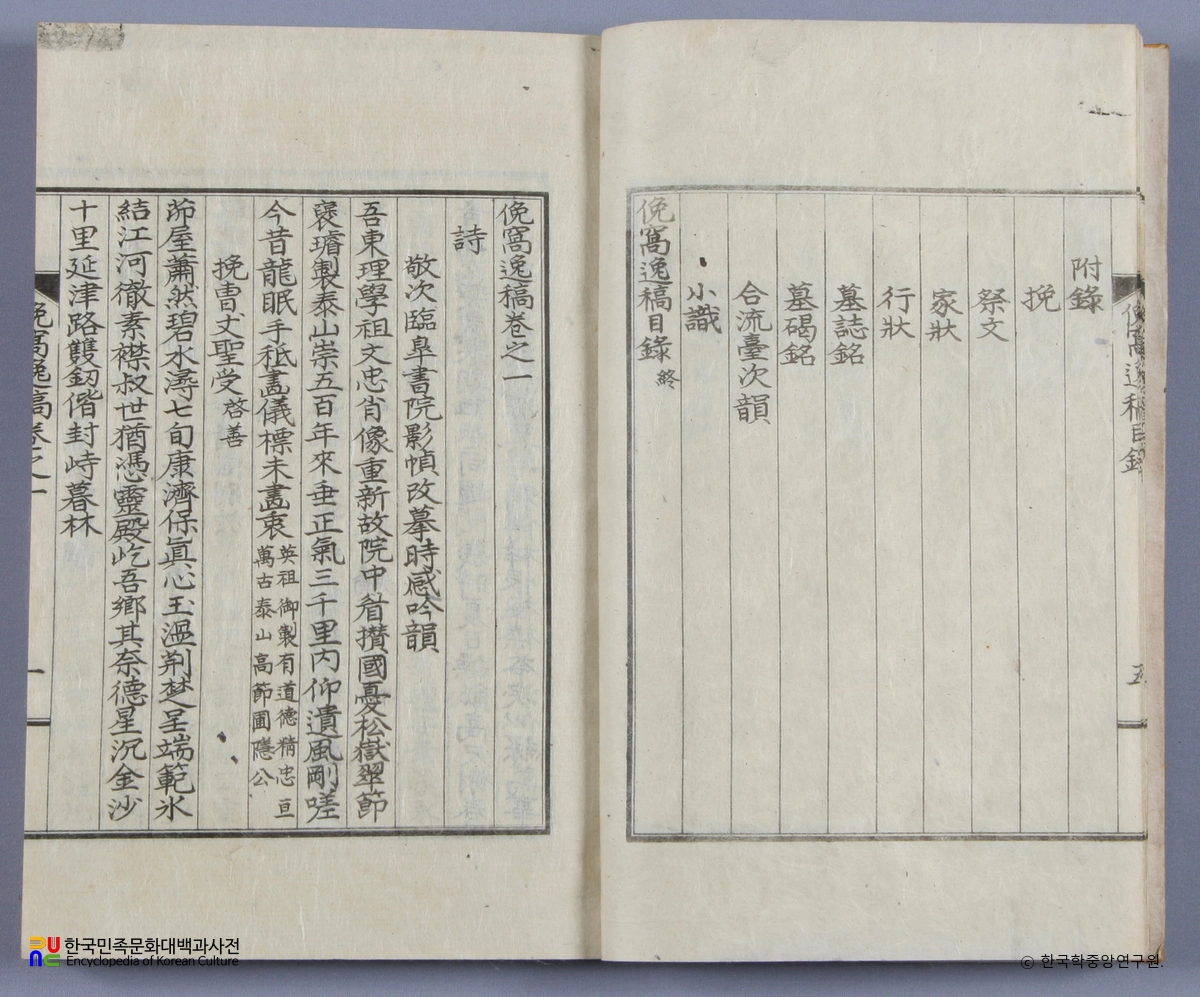 附錄
挽
祭文
家狀
行狀
墓誌銘
墓碣銘
合流臺次韻
小識
俛窩逸稿目錄 終
俛窩逸稿目錄
五
俛窩逸稿卷之一
詩
敬次臨皐書院影幀改摹時感吟韻
吾東理學祖文忠肖像重新故院中眷攢國憂松嶽翠節
襃璿製泰山崇五百年來垂正氣三千里內仰遺風剛嗟
今昔龍眠手秪畵儀標未畵衷 英祖御製有道德精忠亘
萬古泰山高節圃隱公
挽曹丈聖受 啓善
茆屋蕭然碧水潯七旬康濟保眞心玉溫荊楚呈端範氷
結江河徹素襟叔世猶憑靈殿屹吾鄉其奈德星沉金沙
十里延津路雙釰偕封峙暮林
俛窩逸稿卷之一
一
한국민족문화대백과사전
Encyclopedia of Korean Culture
© 한국학중앙연구원.